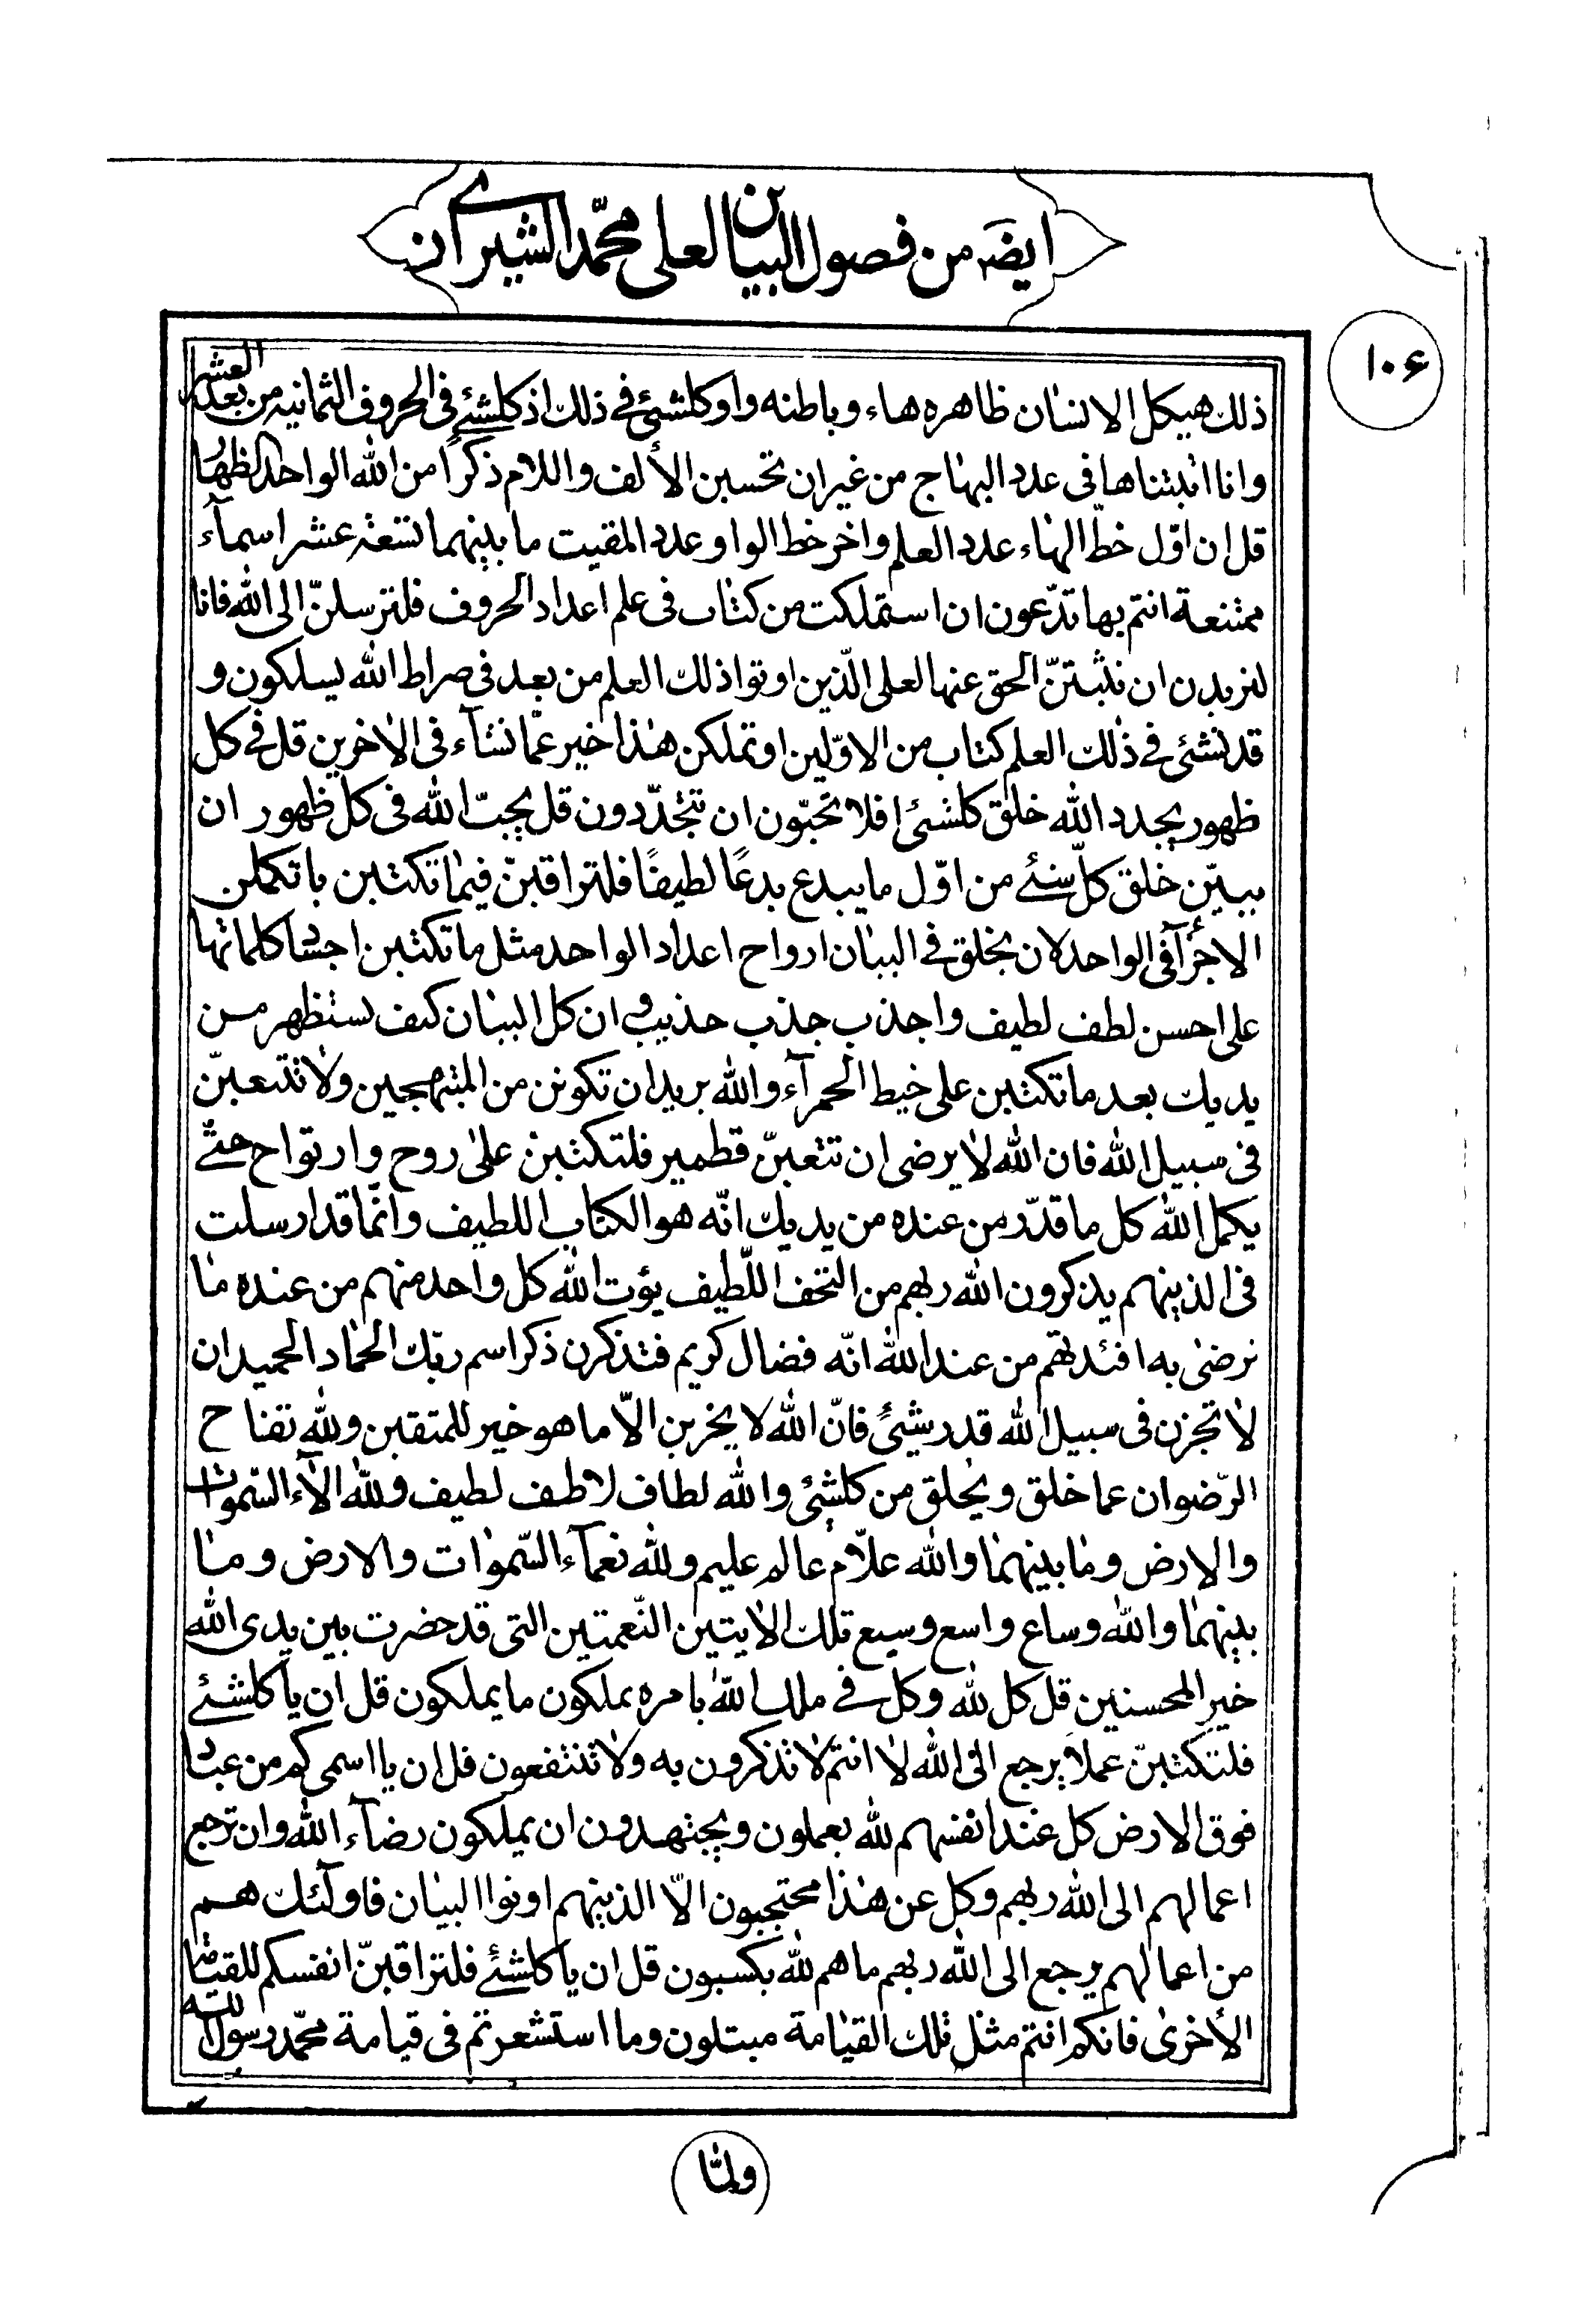 ايضَه من فصول البيان لعلى محمّد الشيرازى
١٠۶
ذلك هيكل الانسان ظاهره هاء وباطنه واو كلشئ في ذلك اذ كلشئ فى الحروف الثمانيه من بعد العشر
وانا اثبتناها فى عدد البهاج من غير ان تحسبن الألف واللام ذكرًا من الله الواحد الظهار
قل ان اوّل خطّ الهاء عدد العلم واخر خط الواو عدد المقيت ما بينهما تسعة عشر اسمآء
ممتنعة انتم بها تدّعون ان استملكت من كتاب فى علم اعداد الحروف فلترسلنّ الى الله فانا
لنريدن ان نثبتنّ الحق عنها لعلى الّذين اوتوا ذلك العلم من بعد فى صراط الله يسلكون و
قد نشئ في ذلك العلم كتاب من الاوّلين اوتملكن هذا خير عمّا نشآء فى الاخرين قل في كل
ظهور يجدد الله خلق كلشئ افلا تحبّون ان تتجدّدون قل يحبّ الله فى كل ظهور ان
يبيّن خلق كلّ شئ من اوّل ما يبدع بدعًا لطيفًا فلتراقبنّ فيما تكتبن با تكملن
الاجزآ فى الواحد لان يخلق في البيان ارواح اعداد الواحد مثل ما تكتبن اجساد كلماتها
على احسن لطف لطيف واجذب جذب جذيب وان كل البيان كيف يستظهر من
يديك بعد ما تكتبن على خيط الحمرآء والله يريد ان تكونن من المبتهجين ولا تتعبنّ
فى سبيل الله فان الله لا يرضى ان تتعبنّ قطمير فلتكتبن على روح وارتواح حتّى
يكمل الله كل ما قدّر من عنده من يديك انّه هو الكتاب اللطيف وانّما قد ارسلت
فى الذينهم يذكرون الله ربهم من التحف اللّطيف يؤت الله كل واحد منهم من عنده ما
نرضى به افئدتهم من عند الله انّه فضال كريم فتذكرن ذكر اسم ربّك الحماد الحميد ان
لا تحزن فى سبيل الله قدر شئ فانّ الله لا يخزين الاّ ما هو خير للمتقين ولله تفتاح
الرّضوان عما خلق ويخلق من كلشئ والله لطاف لاطف لطيف ولله الآء السّموات
والارض وما بينهما والله علاّم عالم عليم ولله نعمآء السّموات والارض وما
بينهما والله وساع واسع وسيع تلك الايتين النّعمتين التى قد حضرت بين يدى الله
خير المحسنين قل كل لله وكل في ملك الله بامره يملكون ما يملكون قل ان يا كلشئ
فلتكتبنّ عملا يرجع الى الله لا انتم لا تذكرون به ولا تنتفعون قل ان يا اسمى كم من عباد
فوق الارض كل عند انفسهم لله يعملون ويجتهدون ان يملكون رضآء الله وان ترجع
اعمالهم الى الله ربهم وكل عن هذا محتجبون الاّ الذينهم اوتوا البيان فاولئك هم
من اعمالهم يرجع الى الله ربهم ما هم لله يكسبون قل ان يا كلشئ فلتراقبنّ انفسكم للقيامة
الأخرى فانكم انتم مثل تلك القيامة مبتلون وما استشعرتم فى قيامة محمّد رسول الله
ولمّا